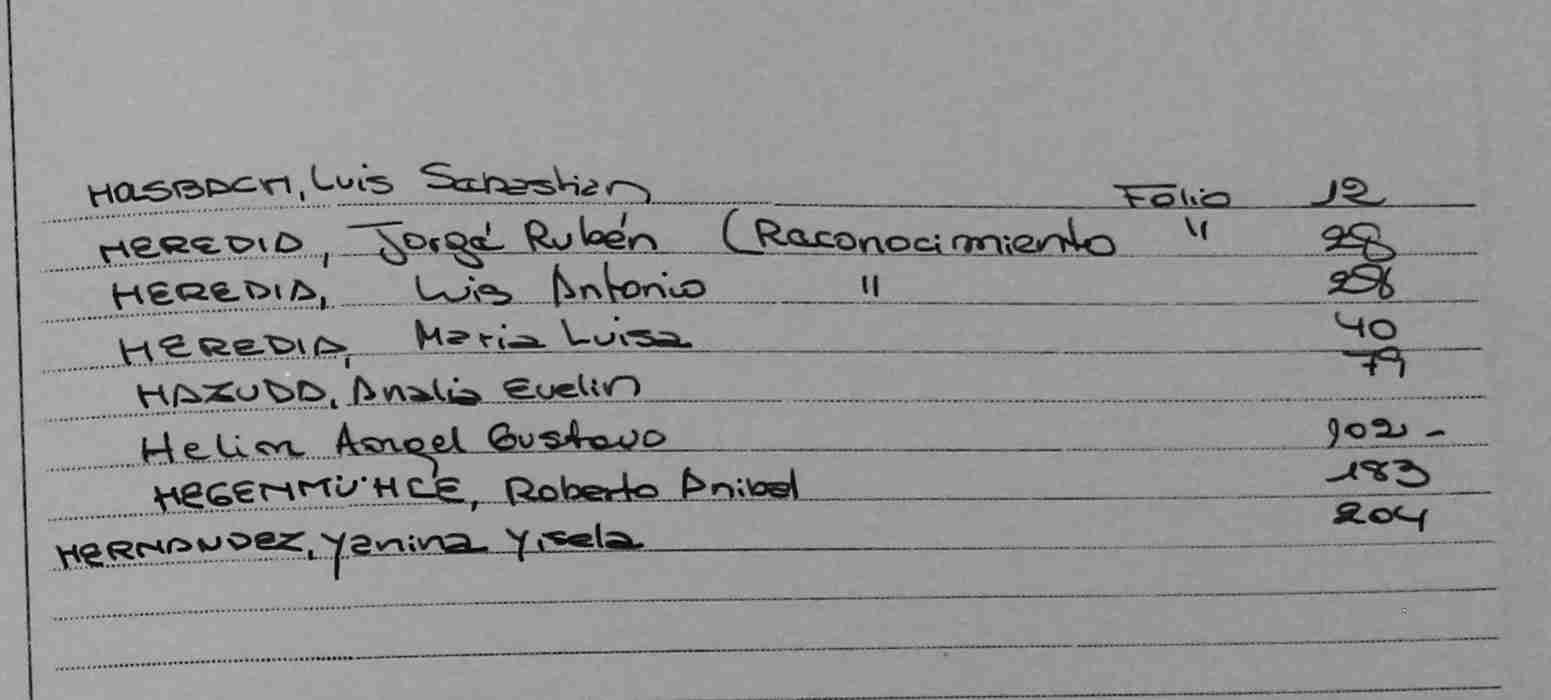 HASBACH, Luis Sebastian Folio 12
HEREDIA, Jorge Rubén (Reconocimiento " 28
HEREDIA, Luis Antonio " 28
HEREDIA, Maria Luisa 40
HAZUDA, Analia Evelin 79
Helim Angel Gustavo 102 -
Roberto Anibal 183
HERNANDEZ, Yanina Yisela 204